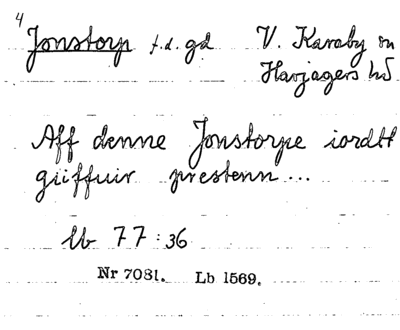 4
Jonstorp f.d. gd V. Karaby sn
Harjagers hd
Aff denne Jonstorpe iordtt
giiffuir prestenn ...
Lb 77:36
Nr 7081. Lb 1569.